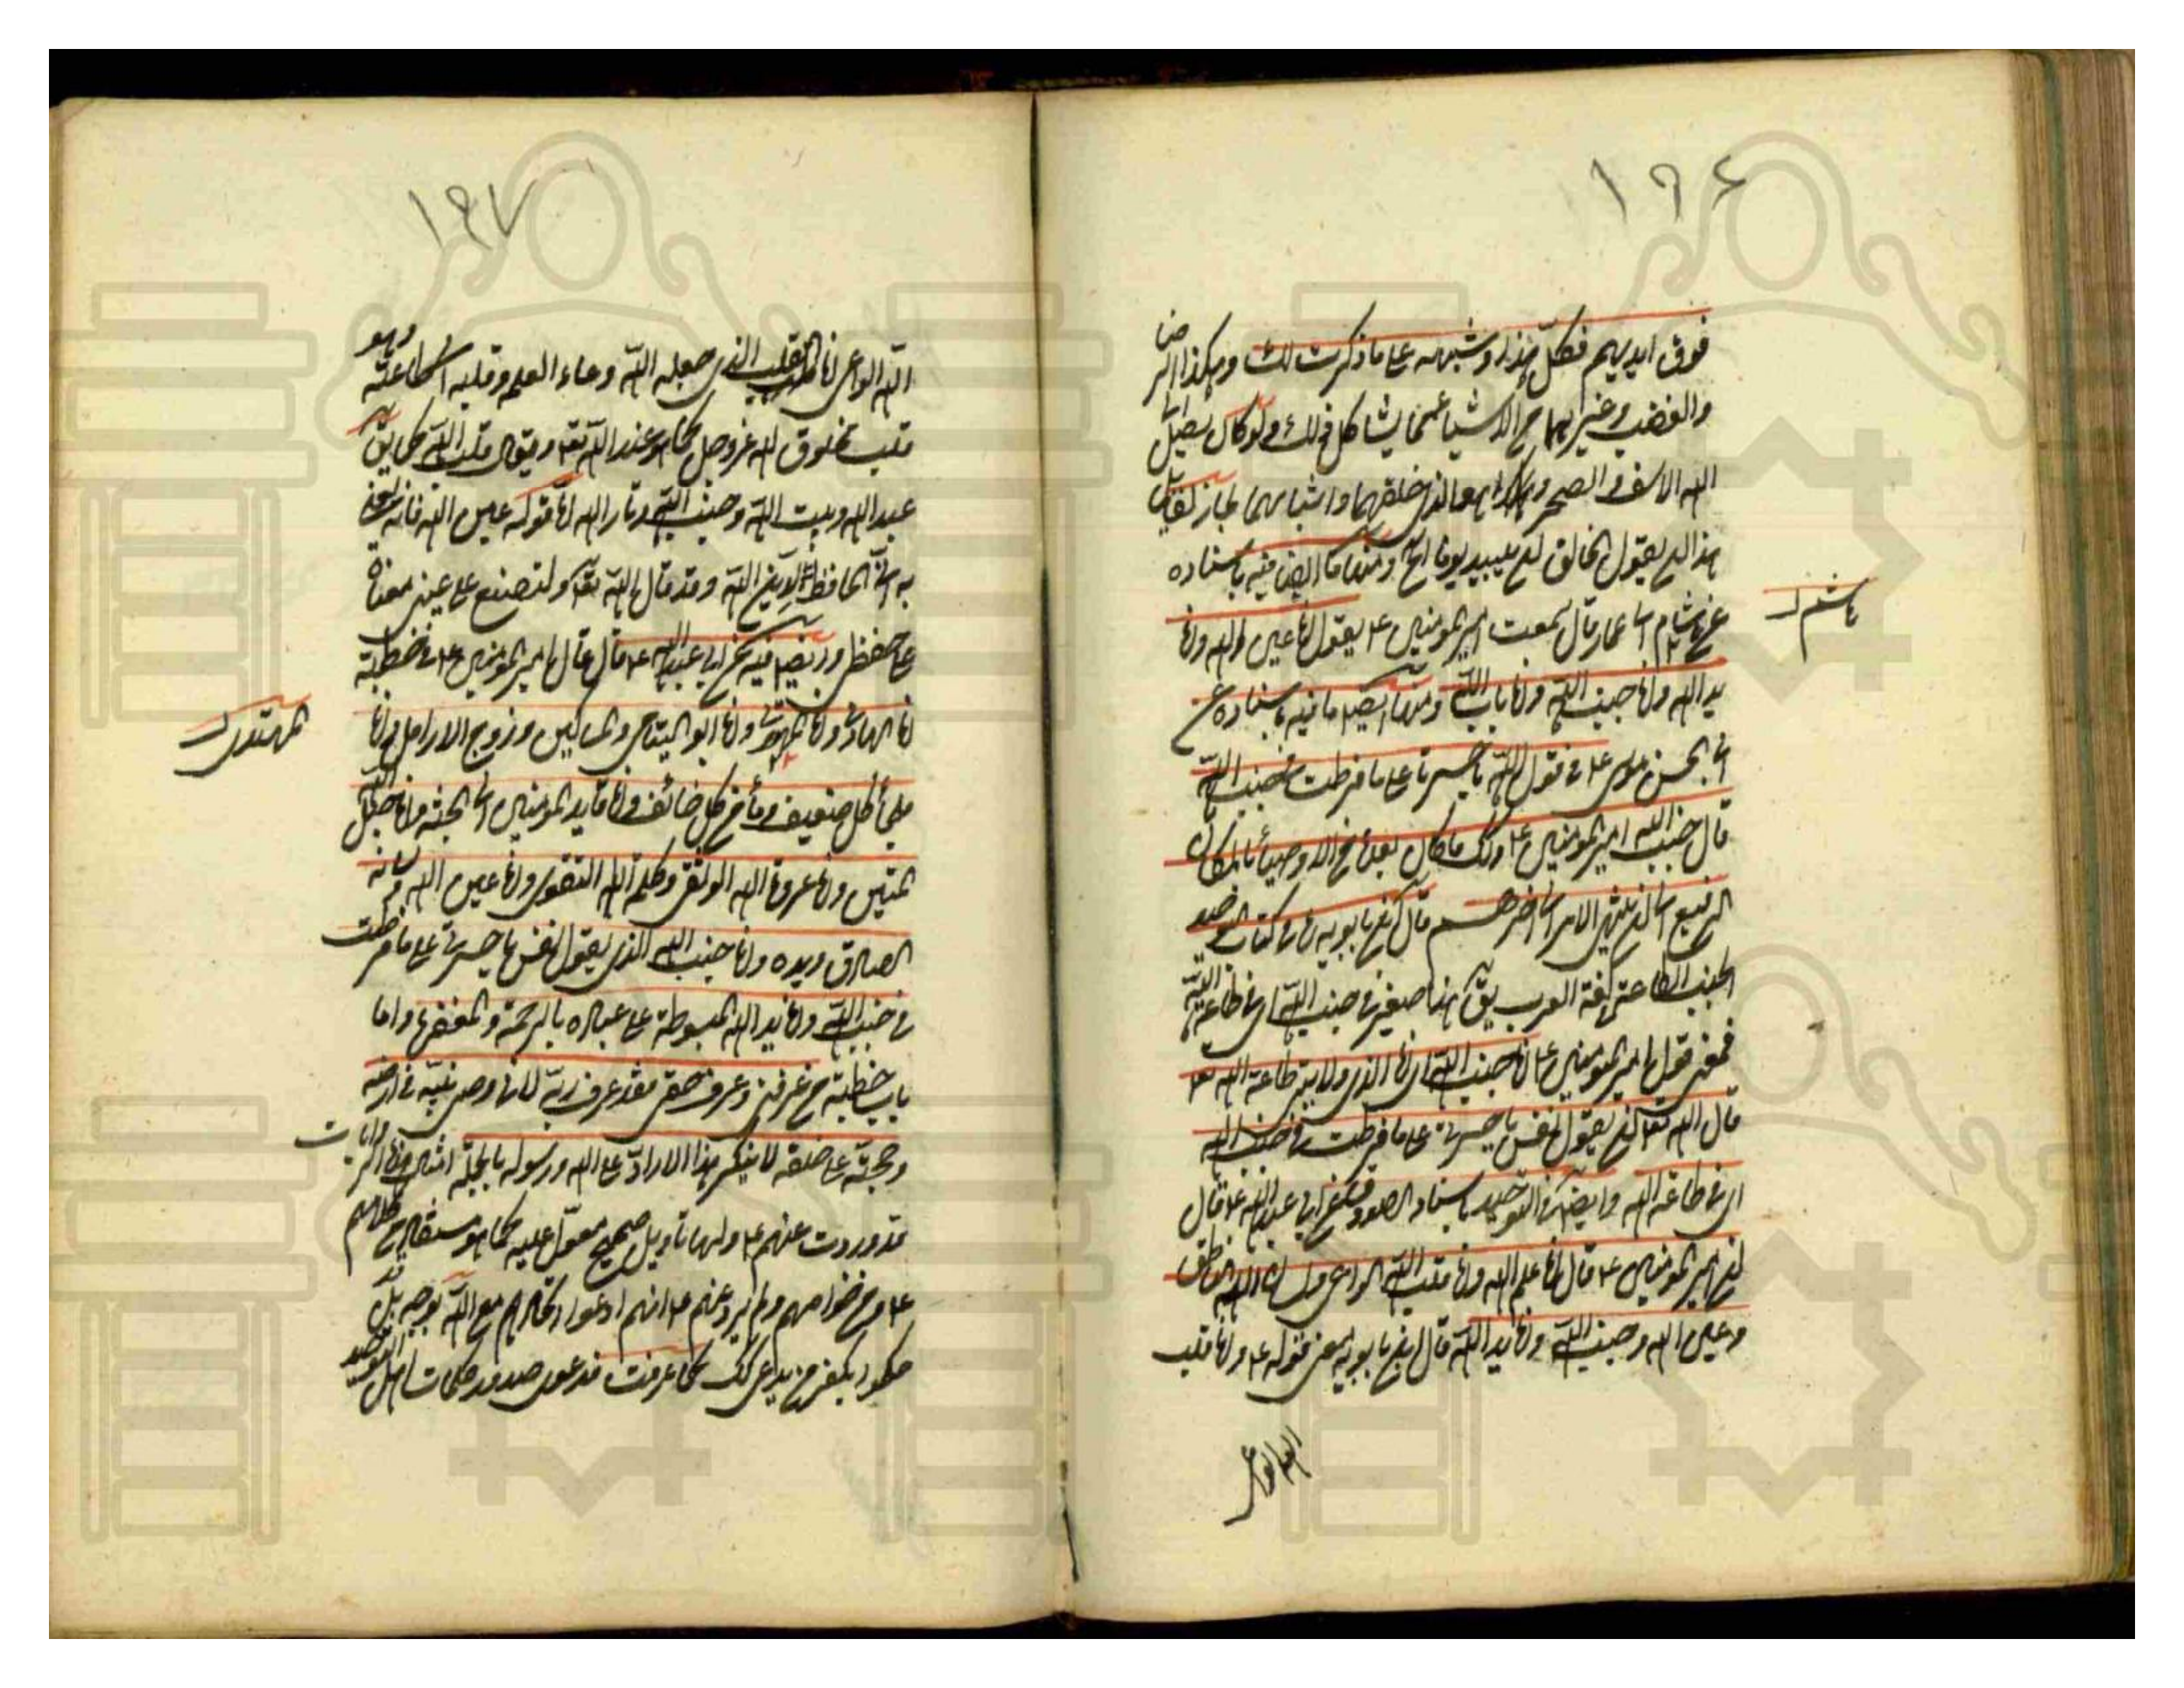 ١٩٤
فوق ايديهم فكل هذا وشبهه على ما ذكرت لك وهكذا الرضا
والغضب وغيرهما من الاشياء مما يشاكل ذلك ولو كان يصل الى
الله الاسف والضجر وهو الذى خلقهما وانشاهما لجاز لقايل
هذا ان يقول ان الخالق يبيد يوما ومنها ما ايضا فيه باسناده
هاشم
عن هشام ابى عمار قال سمعت امير المومنين ع يقول انا عين الله وانا
يد الله وانا جنب الله وانا باب الله ومنها ايضا ما فيه باسناده عن
ابى الحسن موسى ع فى قول الله يا حسرتا على ما فرطت فى جنب الله
قال جنب الله امير المومنين ع وكذلك ما كان بعده من الاوصياء بالمكان
الرفيع الى ان ينتهى الامر الى اخرهم قال ابن بابويه فى كتاب التوحيد
الجنب الطاعة فى لغة العرب يق هذا صغير فى جنب الله اى فى طاعة الله
فمعنى قول امير المومنين ع انا جنب الله اى انا الذى ولايتى طاعة الله تعا
قال الله تعا ان تقول نفس يا حسرتى على ما فرطت فى جنب الله
اى فى طاعة الله وايضا فى التوحيد باسناد الصدوق عن ابى عبد الله ع قال
ان امير المومنين ع قال انا علم الله وانا قلب الله الواعى ولسان الله الناطق
وعين الله وجنب الله وانا يد الله قال ابن بابويه معنى قوله ع وانا قلب
الله الواعى
١٩٧
الله الواعى اى انا القلب الذى جعله الله وعاء لعلمه وقلبه الى طاعته وهو
قلب مخلوق لله عز وجل كما هو عبد الله تعا ويقال قلب الله كما يق
عبد الله وبيت الله وجنة الله ونار الله اما قوله عين الله فانه يعنى
به الحافظ لدين الله وقد قال الله تعا ولتصنع على عينى معناه
على حفظى وايضا فيه عن ابى عبد الله ع قال قال امير المومنين ع فى خطبته
انا الهادى وانا المهتدى وانا ابو اليتامى والمساكين وزوج الارامل وانا
المهتدى
ملجأ كل ضعيف ومأمن كل خائف وانا قايد المومنين الى الجنة وانا حبل الله
المتين وانا عروة الله الوثقى وكلمة الله التقوى وانا عين الله ولسانه
الصادق ويده وانا جنب الله الذى يقول نفس يا حسرتى على ما فرطت
فى جنب الله وانا يد الله المبسوطة على عباده بالرحمة والمغفرة وانا
باب حطة من عرفنى وعرف حقى فقد عرف ربه لانى وصى نبيه فى ارضه
وحجته على خلقه لا ينكر هذا الا راد على الله ورسوله بالجملة امثال هذه الروايات
قد وردت عنهم ع ولها تاويل صحيح معول عليه كما هو مستفاد من كلامهم
ع ومن خواصهم ولم يرد عنهم ع انهم ادعوا اتحادهم مع الله بوجه بل قد
حكموا بكفر من يدعى ذلك كما عرفت